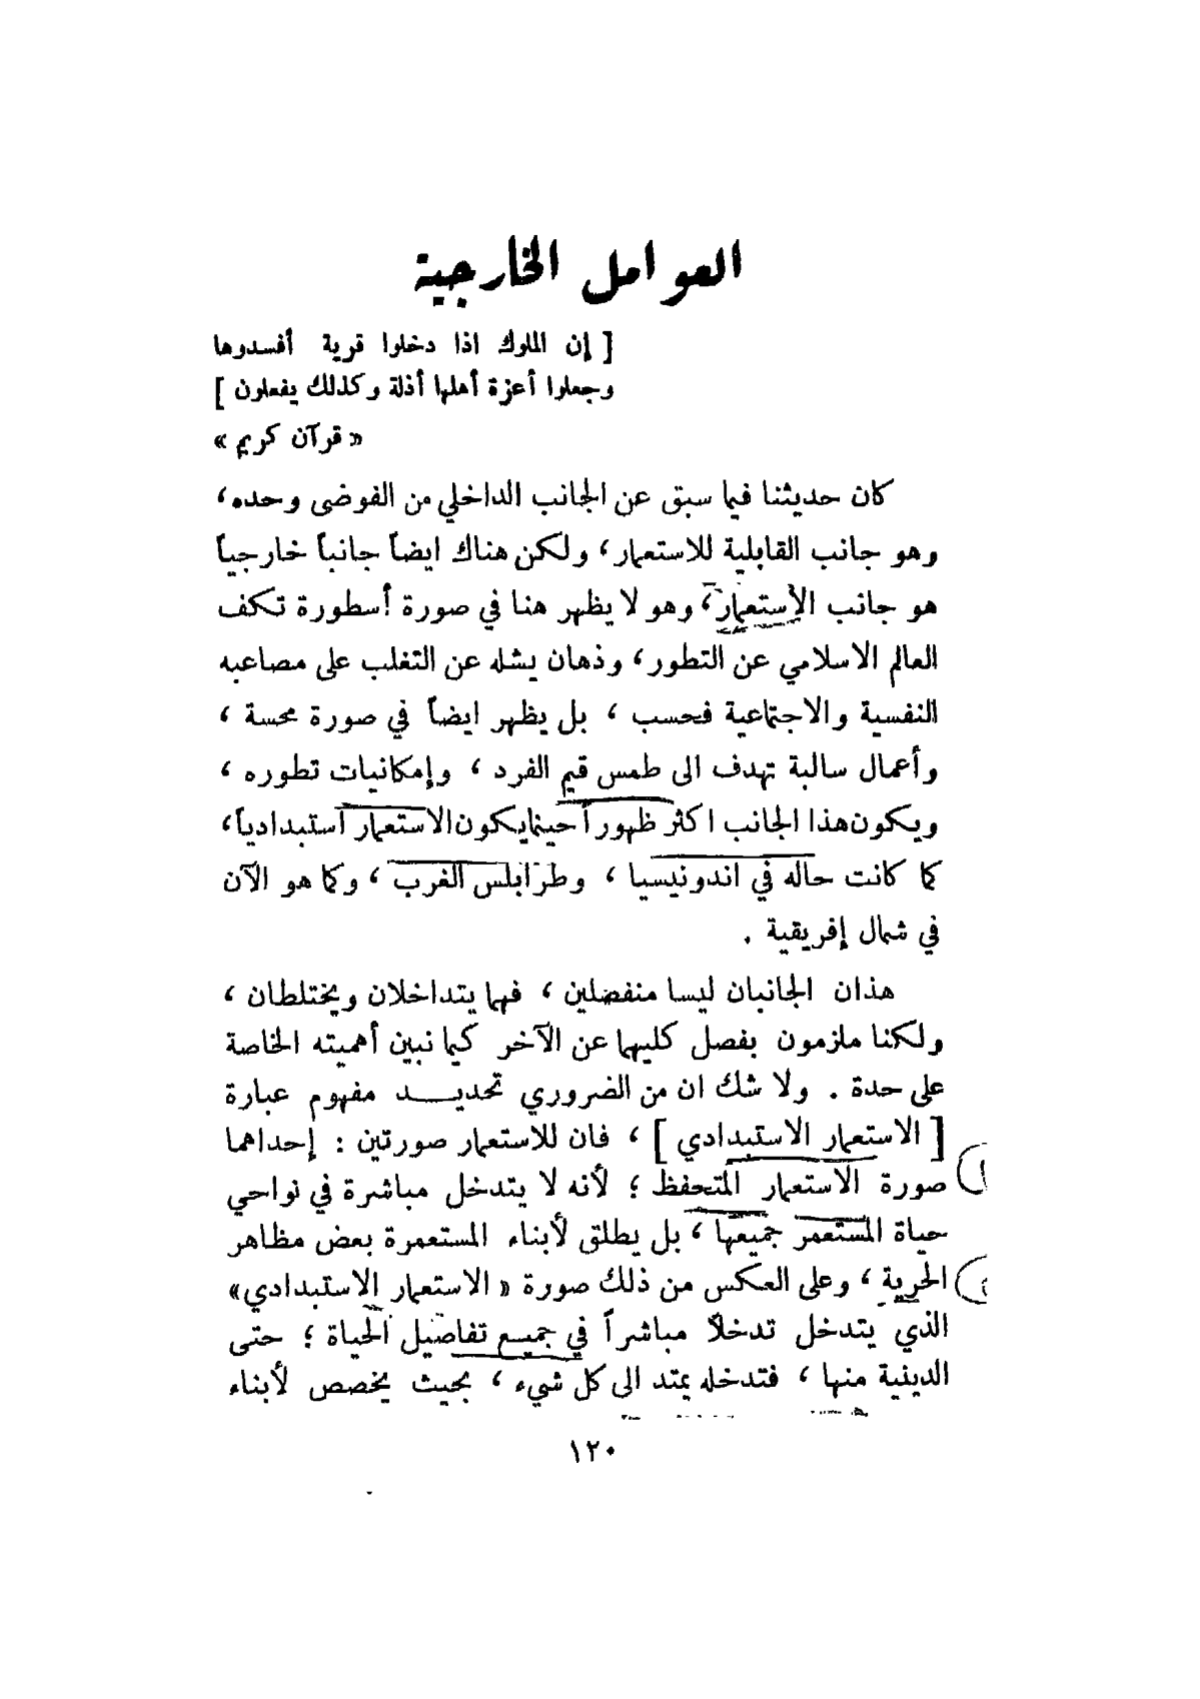 العوامل الخارجية
[ إن الملوك اذا دخلوا قرية أفسدوها
وجعلوا أعزة أهلها أذلة وكذلك يفعلون ]
« قرآن كريم »
كان حديثنا فيما سبق عن الجانب الداخلي من الفوضى وحده،
وهو جانب القابلية للاستعمار، ولكن هناك ايضاً جانباً خارجياً
هو جانب الاستعمار، وهو لا يظهر هنا في صورة أسطورة تكف
العالم الاسلامي عن التطور، وذهان يشله عن التغلب على مصاعبه
النفسية والاجتماعية فحسب ، بل يظهر ايضاً في صورة محسة ،
وأعمال سالبة تهدف الى طمس قيم الفرد ، وإمكانيات تطوره ،
ويكون هذا الجانب اكثر ظهوراً حينما يكون الاستعمار استبدادياً،
كما كانت حاله في اندونيسيا ، وطرابلس الغرب ، وكما هو الآن
في شمال إفريقية .
هذان الجانبان ليسا منفصلين ، فهما يتداخلان ويختلطان ،
ولكنا ملزمون بفصل كليهما عن الآخر كيما نبين أهميته الخاصة
على حدة . ولا شك ان من الضروري تحديـــد مفهوم عبارة
[ الاستعمار الاستبدادي ] ، فان للاستعمار صورتين : إحداهما
صورة الاستعمار المتحفظ ؛ لأنه لا يتدخل مباشرة في نواحي
حياة المستعمر جميعها ، بل يطلق لأبناء المستعمرة بعض مظاهر
الحرية ، وعلى العكس من ذلك صورة « الاستعمار الاستبدادي»
الذي يتدخل تدخلاً مباشراً في جميع تفاصيل الحياة ؛ حتى
الدينية منها ، فتدخله يمتد الى كل شيء ، بحيث يخصص لأبناء
١٢٠